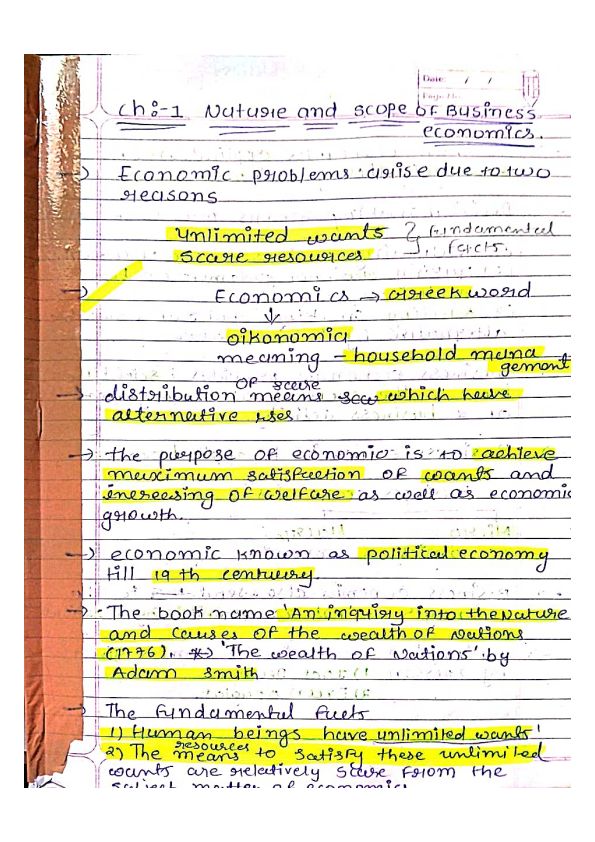 Date: / /
Page No.
Ch:-1 Nature and scope of Business
economics.
→ Economic problems arise due to two
reasons
unlimited wants } fundamental
Scare resources } facts.
→ Economics → Greek word
↓
oikonomia
meaning - household mana
gement
of scare
→ distribution means which have
alternative uses
→ the purpose of economic is to achieve
maximum satisfaction of wants and
increesing of welfare as well as economic
growth.
→ economic known as political economy
till 19 th century
→ The book name 'An inquiry into the Nature
and causes of the wealth of Nations
(1776). *→ 'The wealth of Nations' by
Adam smith
→ The fundamental facts
1) Human beings have unlimited wants'
resources
2) The means to satisfy these unlimited
wants are relatively scare from the
subject matter of economics